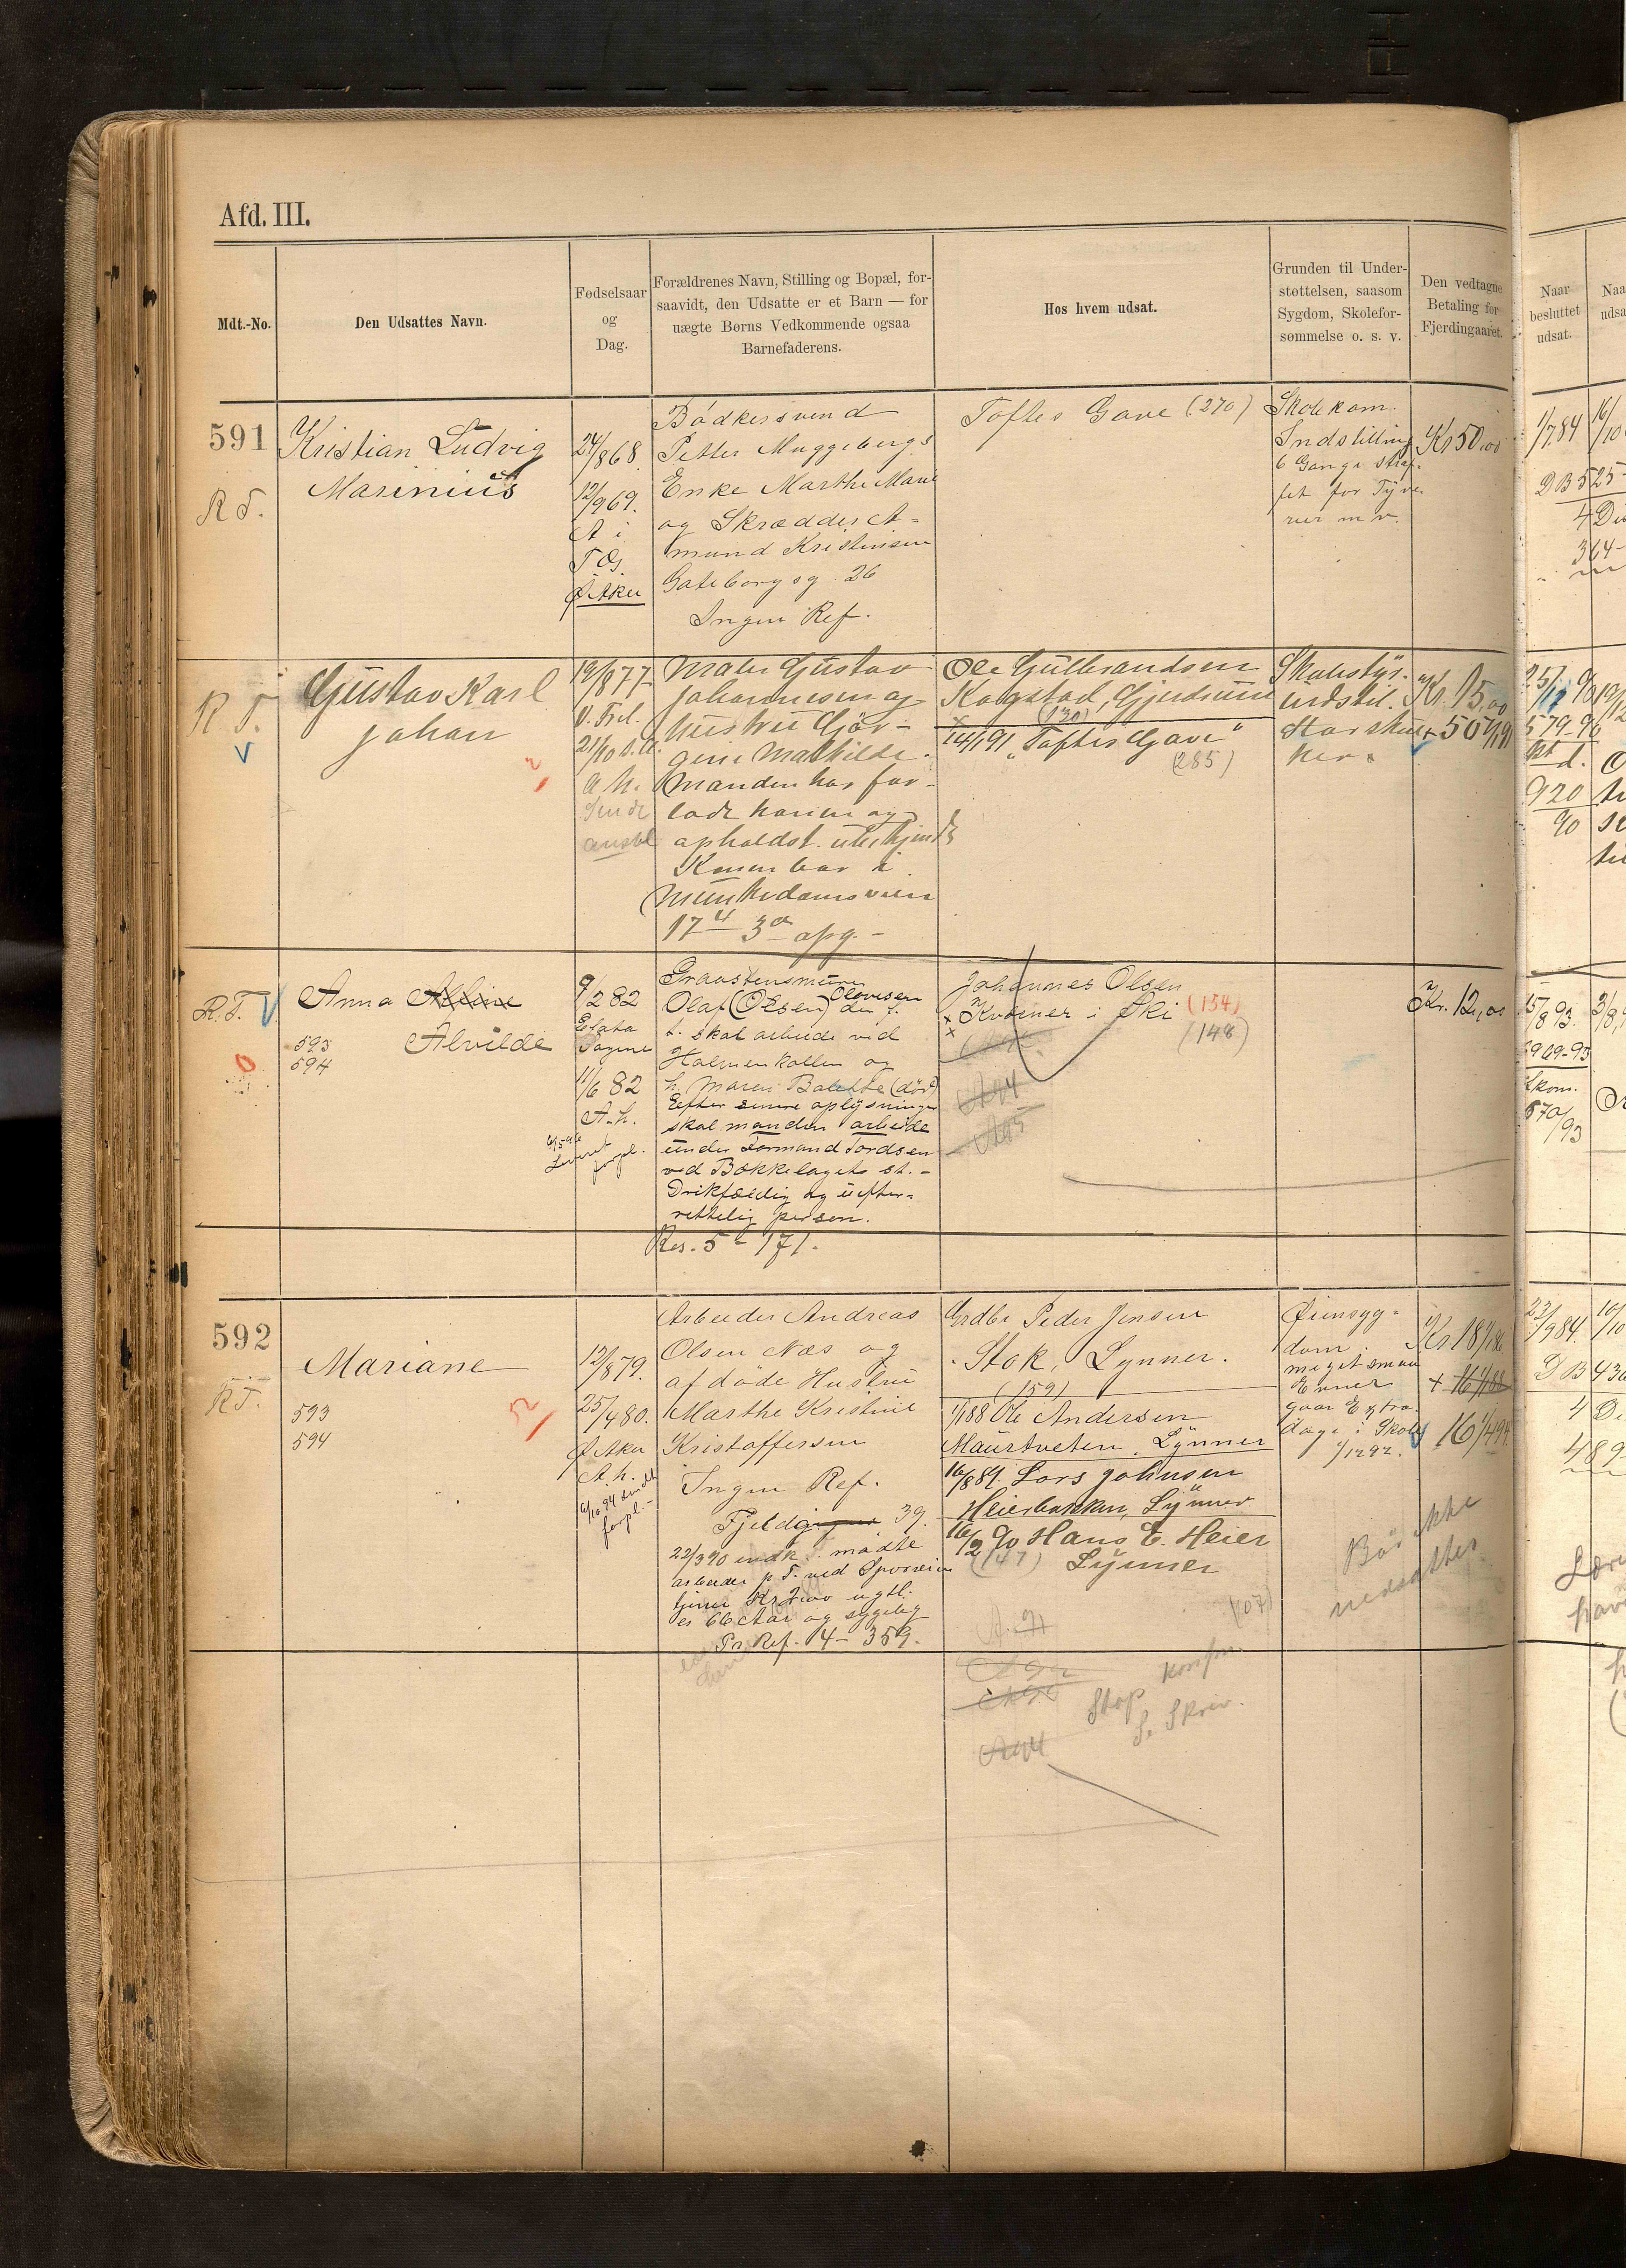 Afd. III.
Mdt.-No.
Den Udsattes Navn.
Fødselsaar
og
Dag.
Forældrenes Navn, Stilling og Bopæl, for-
saavidt, den Udsatte er et Barn — for
uægte Børns Vedkommende ogsaa
Barnefaderens.
Hos hvem udsat.
Grunden til Under-
støttelsen, saasom
Sygdom, Skolefor-
sømmelse o. s. v.
Den vedtagne
Betaling for
Fjerdingaaret.
Naar
besluttet
udsat.
591
R T.
Kristian Ludvig
Marinius
24/8 68
12/9 69.
A i
T G.
Ø Aker
Bödkersvend
Petter Muggebergs
Enke Marthe Marie
og Skrædder A-
mund Kristensen
Gøteborgsg. 26
Ingen Ref.
Toftes Gave (270)
Skolekom.
Indstilling
6 Gange straf-
fet for Tyve-
rier m v.
Kr 50.00
1/7 84
DB 525
364
R T.
V
Gustav Karl
Johan
19/8 77
V. Frel.
21/10
A h.
Maler Gustav
Johannesen og
Hustru Gör-
gine Mathilde.
Manden har for-
ladt konen og
opholdst. ubekjendt
Konen bor i
Munkedamsveien
17 4 3 opg.
Ole Gulbrandsen
Kogstad, Gjerdrum
(130)
14/1 91 "Toftes Gave"
(285)
Skolestyr.
indstil.
Storsku-
ker.
Kr. 15,00
+ 50
25/11 90
579-90
920
90
R.T. V
0
Anna Alvine
Alvilde
593
594
9/2 82
Petri
Sagene
11/6 82
A. h.
Graastensmurer
Olaf (Olsen) Olavesen
t. skal arbeide ved
Holmenkollen og
h. Maren Bolette (död)
Efter senere oplysninger
skal manden arbeide
under Formand Tordsen
ved Bækkelagets st. -
Drikfældig og uefter-
rettelig person.
Res. 5 - 171.
Johannes Olsen
Kværner i Ski (154)
(148)
Kr. 12,00
15/8 93.
969-93
Skom.
570/93
592
R T.
Mariane
593
594
12/8 79.
25/4 80.
Ø Aker
A. h.
Arbeider Andreas
Olsen Næs og
afdöde Hustru
Marthe Kristine
Kristoffersen
Ingen Ref.
39.
22/3 90 indk. mødte
arbeider p. T. ved Sporveien
er 66 Aar og sygelig
Pr. Ref. 4 - 359.
Grdbr Peder Jensen
Stok, Lynner.
(159)
1/1 88 Ole Andersen
Maurtveten, Lynner
16/8 89. Lars Johnsen
Heierbakken, Lynner
16/2 90 Hans E. Heier
(147) Lynner
(107)
Stop
S. Skriv.
Øiensyg-
dom.
meget smaa
Evner
gaar Extra
dage i Skole
1/12 92.
Bør ikke
nedsættes
Kr 18
+ 16 1/1 88
16
23/9 84.
DB 430
489